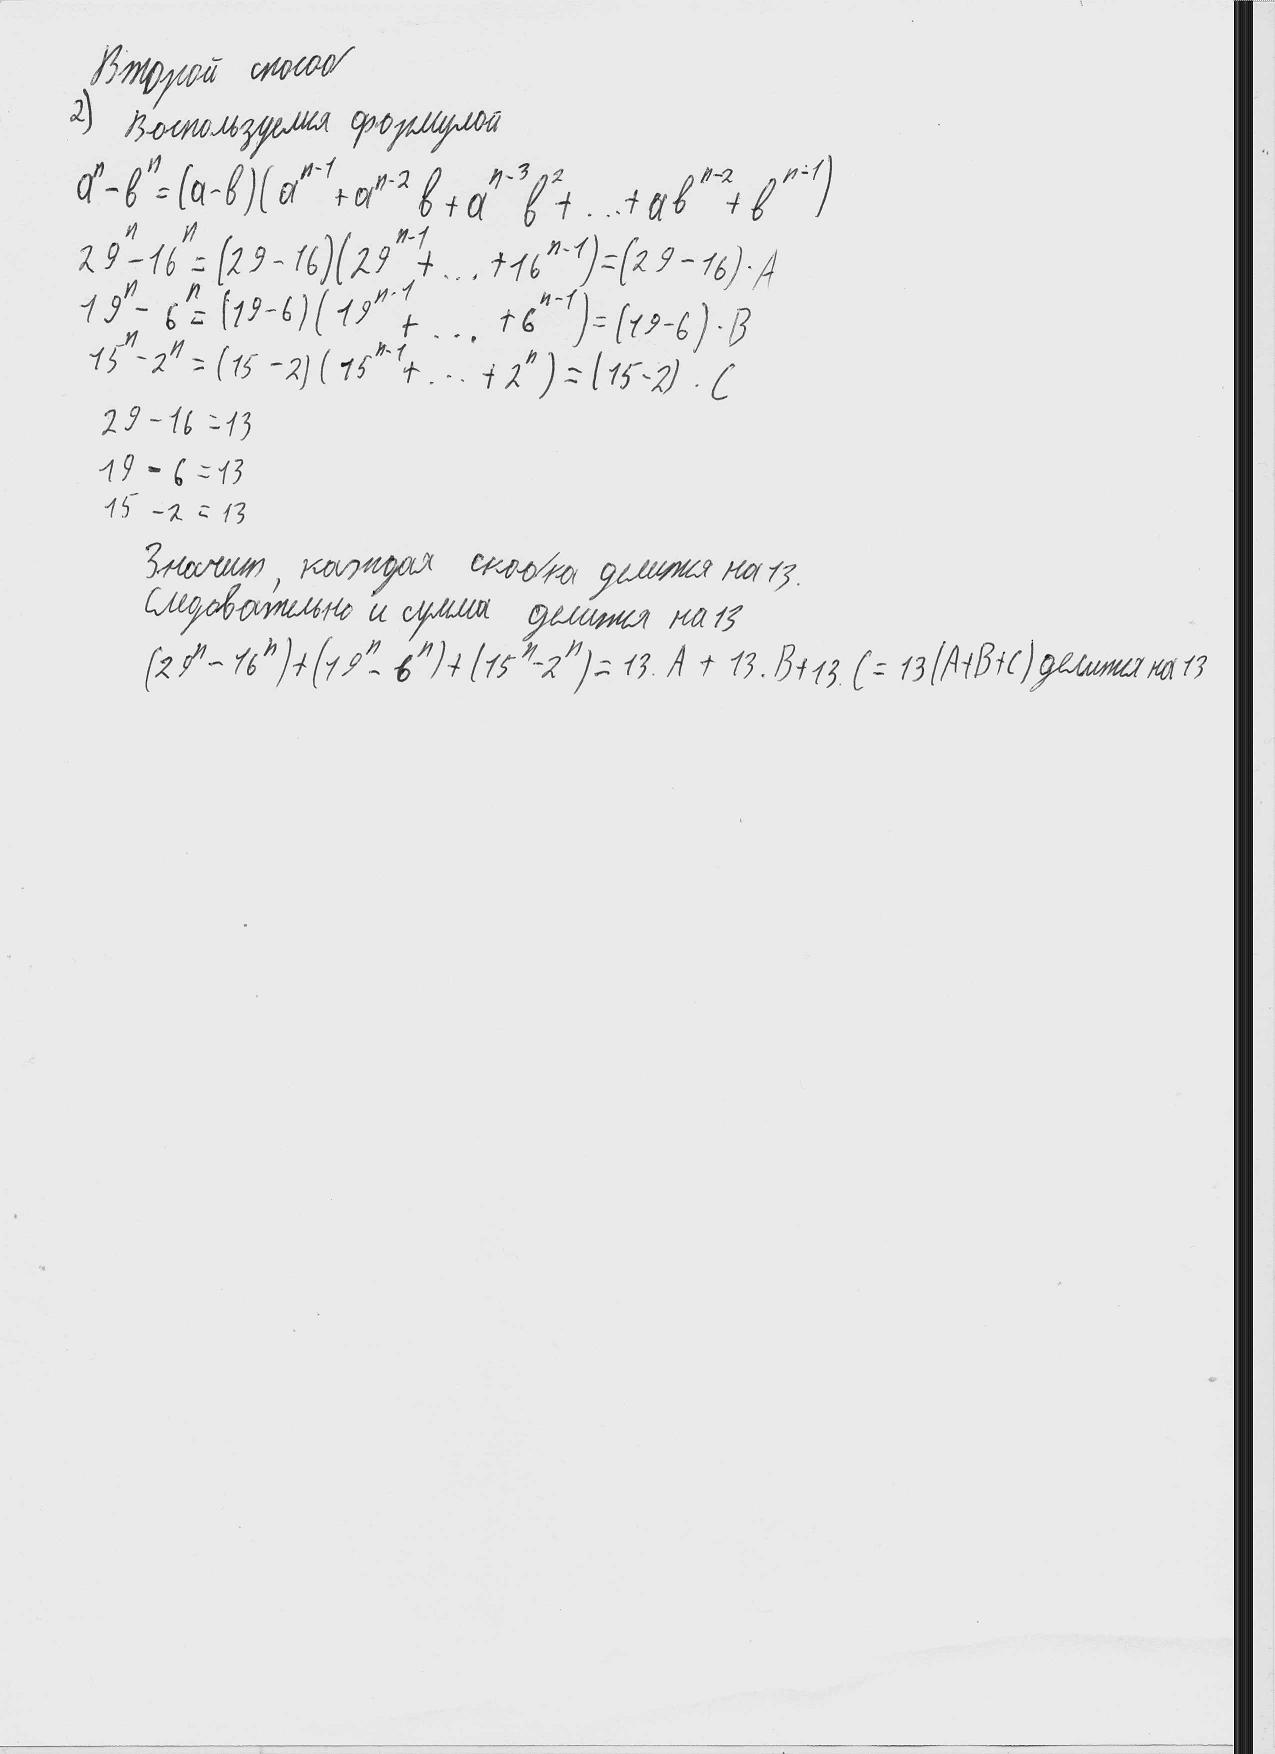 Второй способ
2) Воспользуемся формулой
aⁿ-bⁿ=(a-b)(aⁿ⁻¹+aⁿ⁻²b+aⁿ⁻³b²+...+abⁿ⁻²+bⁿ⁻¹)
29ⁿ-16ⁿ=(29-16)(29ⁿ⁻¹+...+16ⁿ⁻¹)=(29-16)·A
19ⁿ-6ⁿ=(19-6)(19ⁿ⁻¹+...+6ⁿ⁻¹)=(19-6)·B
15ⁿ-2ⁿ=(15-2)(15ⁿ⁻¹+...+2ⁿ)=(15-2)·C
29-16=13
19-6=13
15-2=13
Значит, каждая скобка делится на 13.
Следовательно и сумма делится на 13
(29ⁿ-16ⁿ)+(19ⁿ-6ⁿ)+(15ⁿ-2ⁿ)=13·A+13·B+13·C=13(A+B+C) делится на 13